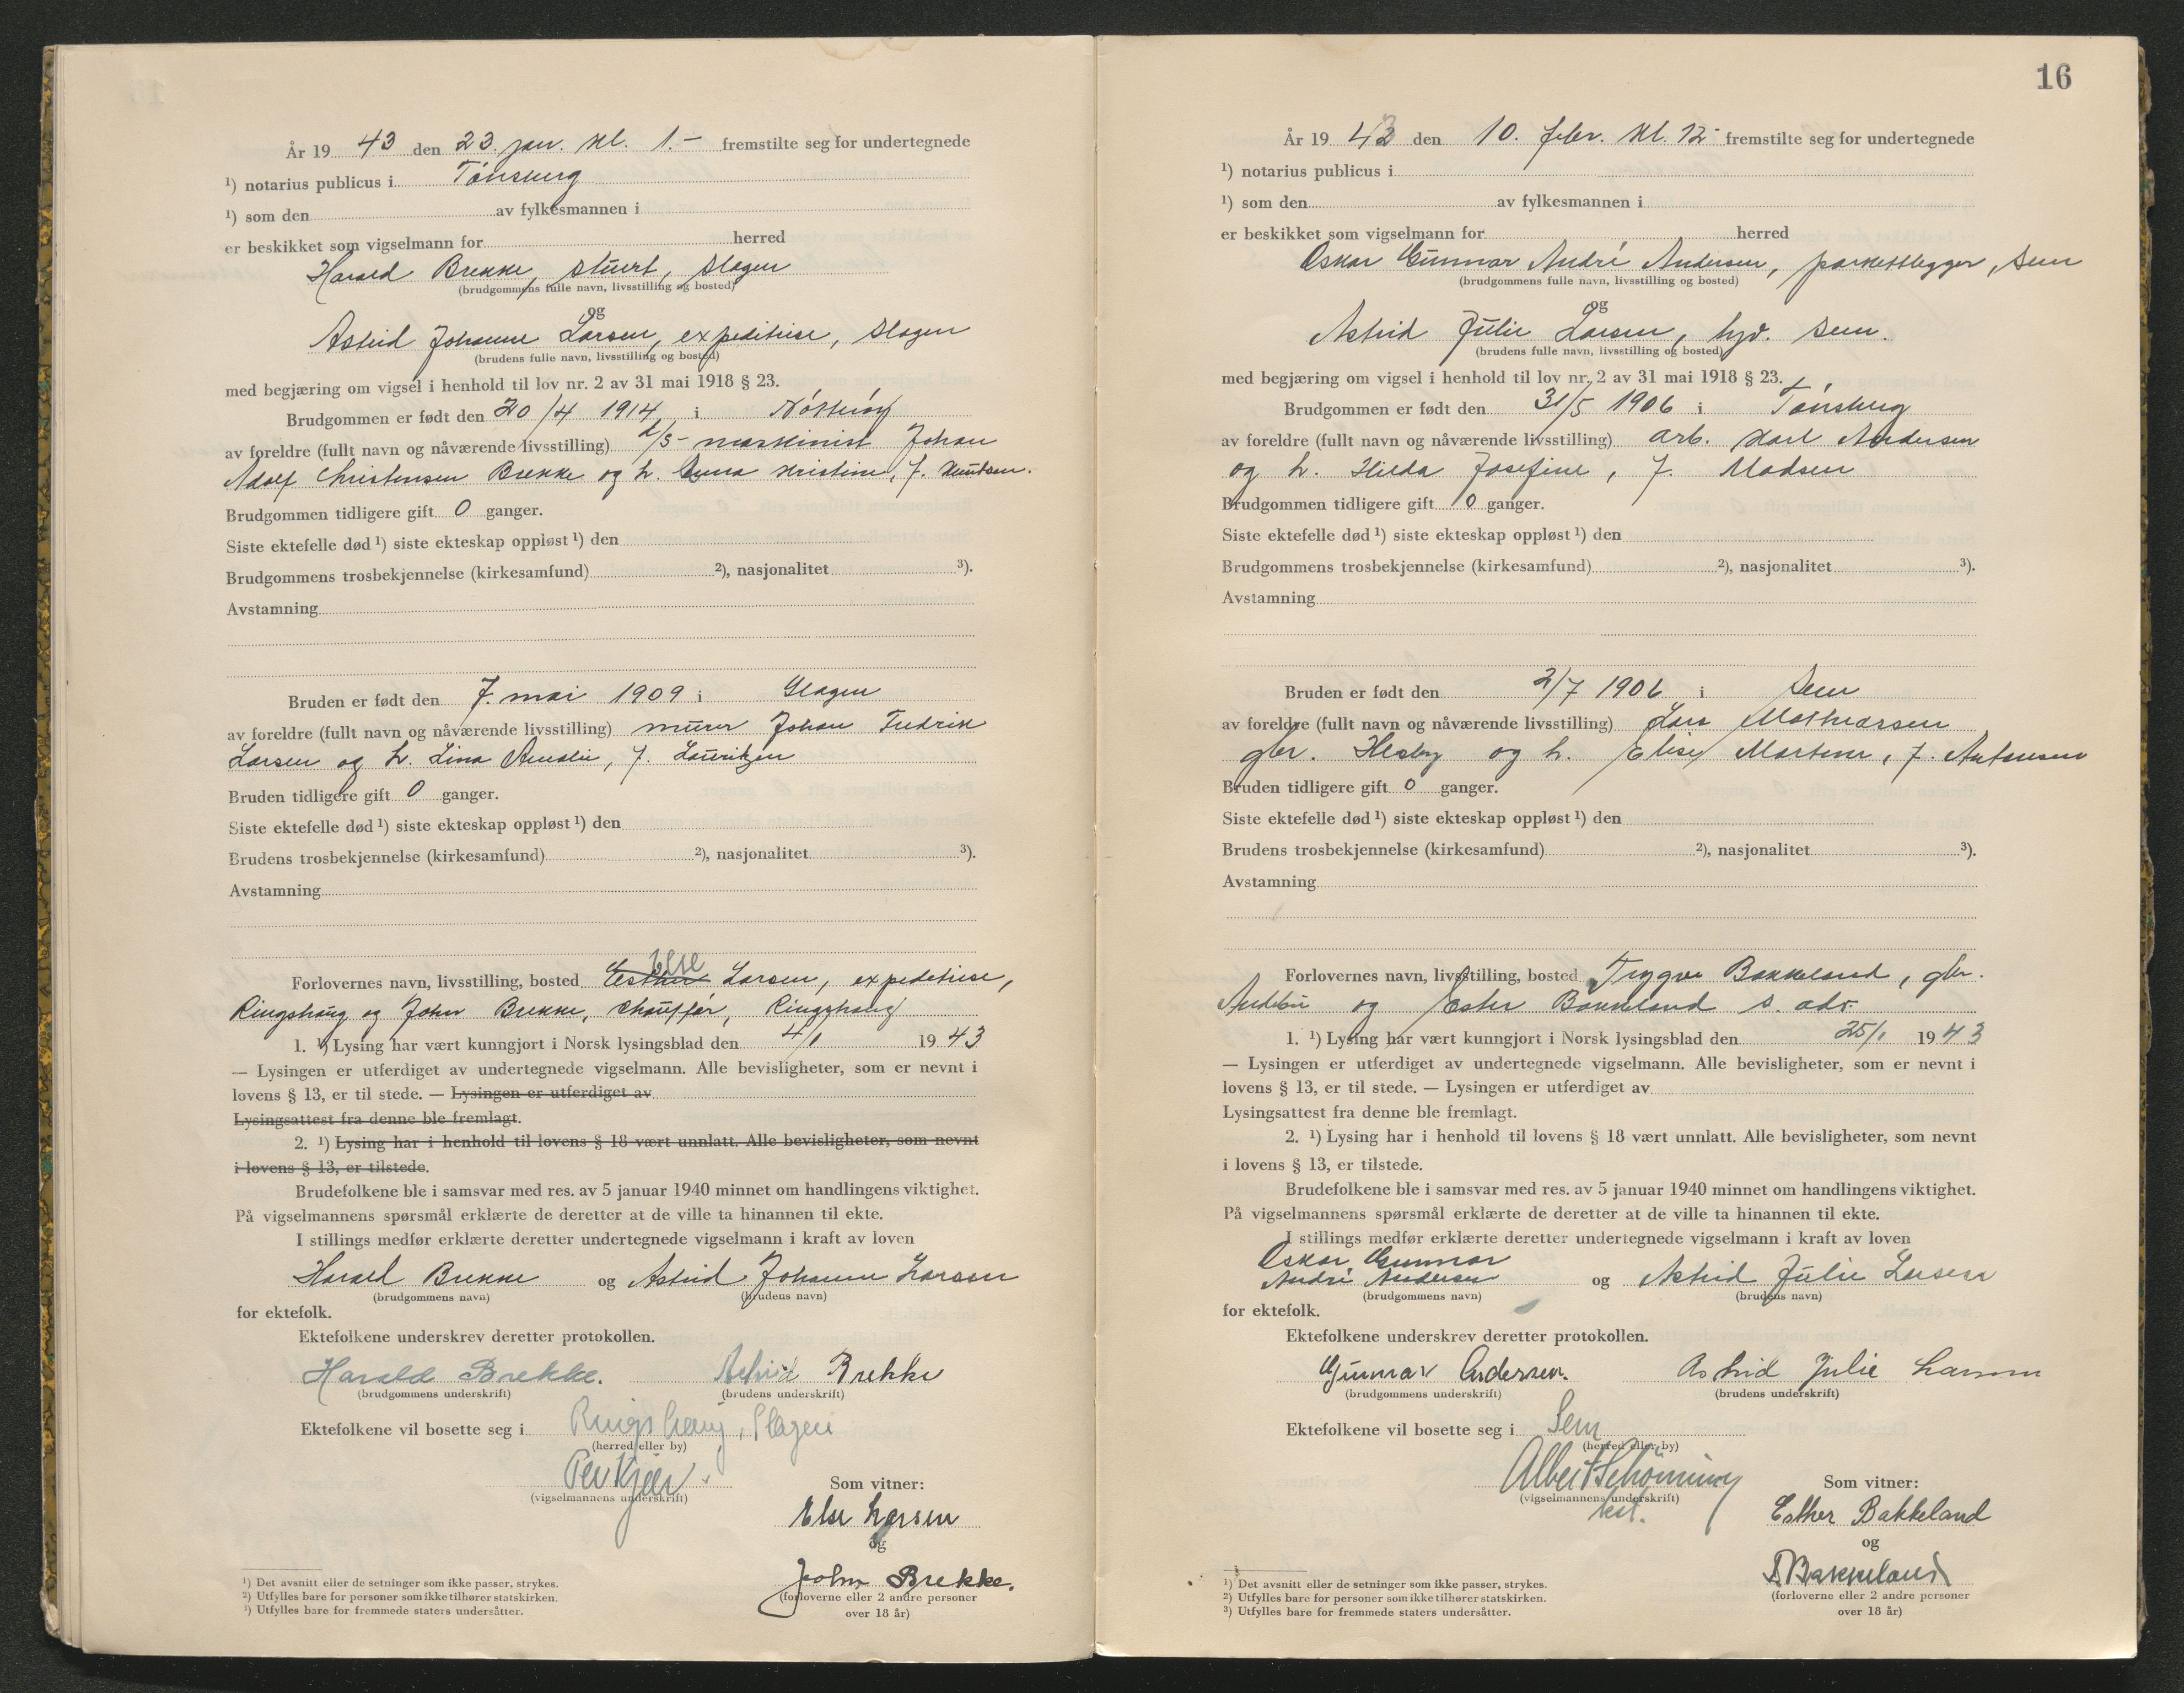 År 19 43 den 23. jan. kl. 1.- fremstilte seg for undertegnede
¹) notarius publicus i Tönsberg
¹) som den av fylkesmannen i
er beskikket som vigselmann for herred
Harald Brekke, stuert, Slagen
(brudgommens fulle navn, livsstilling og bosted)
og
Astrid Johanne Larsen, expeditrise, Slagen
(brudens fulle navn, livsstilling og bosted)
med begjæring om vigsel i henhold til lov nr. 2 av 31 mai 1918 § 23.
Brudgommen er født den 20/4 1914 i Nötteröy
av foreldre (fullt navn og nåværende livsstilling) d/s-maskinist Johan
Adolf Christensen Brekke og h. Anna Kristine, f. Knutsen.
Brudgommen tidligere gift 0 ganger.
Siste ektefelle død ¹) siste ekteskap oppløst ¹) den
Brudgommens trosbekjennelse (kirkesamfund) ²), nasjonalitet ³).
Avstamning
Bruden er født den 7. mai 1909 i Slagen
av foreldre (fullt navn og nåværende livsstilling) murer Johan Fredrik
Larsen og h. Lina Amalie, f. Lauritzen
Bruden tidligere gift 0 ganger.
Siste ektefelle død ¹) siste ekteskap oppløst ¹) den
Brudens trosbekjennelse (kirkesamfund) ²), nasjonalitet ³).
Avstamning
Else
Forlovernes navn, livsstilling, bosted Esther Larsen, expeditrise,
Ringshaug og John Brekke, chauffør, Ringshaug
1. ¹) Lysing har vært kunngjort i Norsk lysingsblad den 4/1 19 43
— Lysingen er utferdiget av undertegnede vigselmann. Alle bevisligheter, som er nevnt i
lovens § 13, er til stede. — Lysingen er utferdiget av
Lysingsattest fra denne ble fremlagt.
2. ¹) Lysing har i henhold til lovens § 18 vært unnlatt. Alle bevisligheter, som nevnt
i lovens § 13, er tilstede.
Brudefolkene ble i samsvar med res. av 5 januar 1940 minnet om handlingens viktighet.
På vigselmannens spørsmål erklærte de deretter at de ville ta hinannen til ekte.
I stillings medfør erklærte deretter undertegnede vigselmann i kraft av loven
Harald Brekke og Astrid Johanne Larsen
(brudgommens navn) (brudens navn)
for ektefolk.
Ektefolkene underskrev deretter protokollen.
Harald Brekke. Astrid Brekke
(brudgommens underskrift) (brudens underskrift)
Ektefolkene vil bosette seg i Ringshaug, Slagen
(herred eller by)
Per Kjær.
(vigselmannens underskrift)
Som vitner:
Else Larsen
og
John Brekke.
(forloverne eller 2 andre personer
over 18 år)
¹) Det avsnitt eller de setninger som ikke passer, strykes.
²) Utfylles bare for personer som ikke tilhører statskirken.
³) Utfylles bare for fremmede staters undersåtter.
16
År 19 43 den 10. febr. kl. 12- fremstilte seg for undertegnede
¹) notarius publicus i
¹) som den av fylkesmannen i
er beskikket som vigselmann for herred
Oskar Gunnar André Andersen, parkettlegger, Sem
(brudgommens fulle navn, livsstilling og bosted)
og
Astrid Julie Larsen, hyd. Sem.
(brudens fulle navn, livsstilling og bosted)
med begjæring om vigsel i henhold til lov nr. 2 av 31 mai 1918 § 23.
Brudgommen er født den 31/5 1906 i Tönsberg
av foreldre (fullt navn og nåværende livsstilling) arb. Karl Andersen
og h. Hilda Josefine, f. Madsen
Brudgommen tidligere gift 0 ganger.
Siste ektefelle død ¹) siste ekteskap oppløst ¹) den
Brudgommens trosbekjennelse (kirkesamfund) ²), nasjonalitet ³).
Avstamning
Bruden er født den 2/7 1906 i Sem
av foreldre (fullt navn og nåværende livsstilling) Lars Mathiassen
gbr. Hesby og h. Elise Martine, f. Antonsen
Bruden tidligere gift 0 ganger.
Siste ektefelle død ¹) siste ekteskap oppløst ¹) den
Brudens trosbekjennelse (kirkesamfund) ²), nasjonalitet ³).
Avstamning
Forlovernes navn, livsstilling, bosted Trygve Bakkeland, gbr.
Andebu og Ester Bakkeland s. adr.
1. ¹) Lysing har vært kunngjort i Norsk lysingsblad den 25/1 19 43
— Lysingen er utferdiget av undertegnede vigselmann. Alle bevisligheter, som er nevnt i
lovens § 13, er til stede. — Lysingen er utferdiget av
Lysingsattest fra denne ble fremlagt.
2. ¹) Lysing har i henhold til lovens § 18 vært unnlatt. Alle bevisligheter, som nevnt
i lovens § 13, er tilstede.
Brudefolkene ble i samsvar med res. av 5 januar 1940 minnet om handlingens viktighet.
På vigselmannens spørsmål erklærte de deretter at de ville ta hinannen til ekte.
I stillings medfør erklærte deretter undertegnede vigselmann i kraft av loven
Oskar Gunnar
André Andersen og Astrid Julie Larsen
(brudgommens navn) (brudens navn)
for ektefolk.
Ektefolkene underskrev deretter protokollen.
Gunnar Andersen. Astrid Julie Larsen
(brudgommens underskrift) (brudens underskrift)
Ektefolkene vil bosette seg i Sem
(herred eller by)
Albert Schöning
(vigselmannens underskrift)
Som vitner:
Esther Bakkeland
og
T Bakkeland
(forloverne eller 2 andre personer
over 18 år)
¹) Det avsnitt eller de setninger som ikke passer, strykes.
²) Utfylles bare for personer som ikke tilhører statskirken.
³) Utfylles bare for fremmede staters undersåtter.